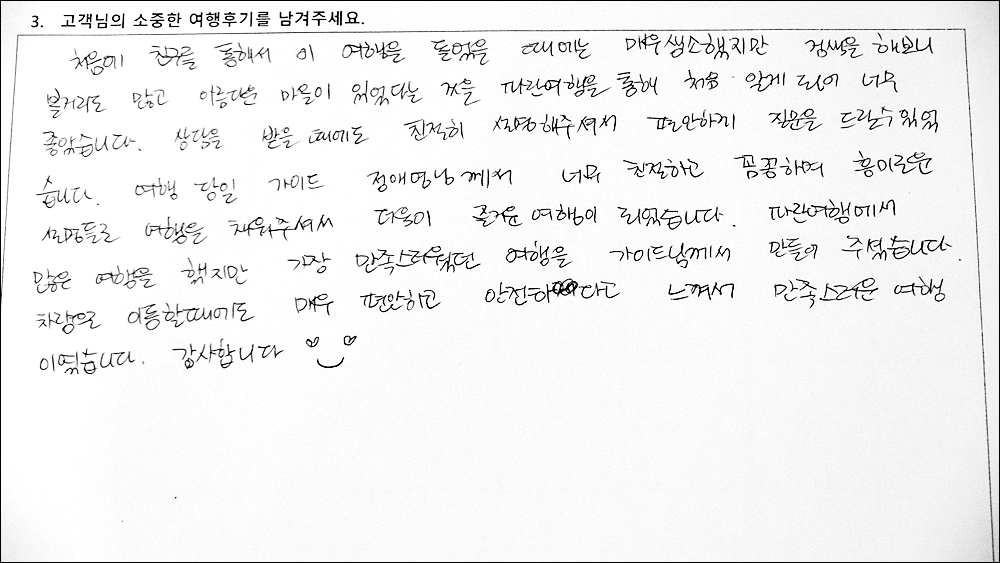 3. 고객님의 소중한 여행후기를 남겨주세요.
처음에 친구를 통해서 이 여행을 들었을 때에는 매우생소했지만 검색을 해보니
볼거리도 많고 아름다운 마을이 있었다는 것을 따란여행을 통해 처음 알게 되어 너무
좋았습니다. 상담을 받을 때에도 친절히 설명해주셔서 편안하게 질문을 드릴수있었
습니다. 여행 당일 가이드 정애영님께서 너무 친절하고 꼼꼼하며 흥미로운
설명들로 여행을 채워주셔서 더욱이 즐거운 여행이 되었습니다. 따란여행에서
많은 여행을 했지만 가장 만족스러웠던 여행을 가이드님께서 만들어 주셨습니다.
차량으로 이동할때에도 매우 편안하고 안전하다고 느껴서 만족스러운 여행
이였습니다. 감사합니다